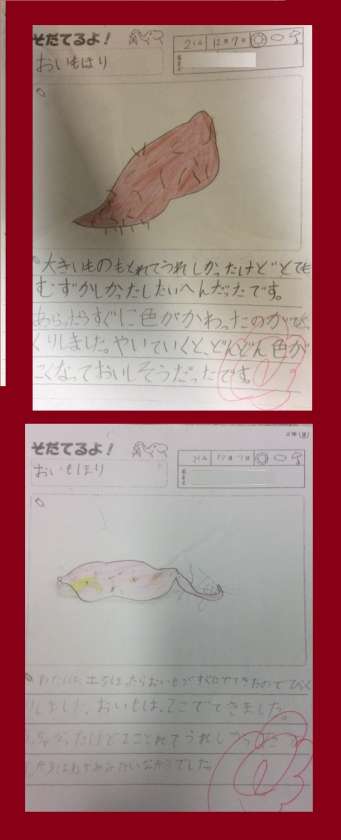 そだてるよ!
おいもほり
大きいものもとれてうれしかったけどとても
むずかしかったしたいへんだったです。
あらったらすぐに色がかわったのがびっ
くりしました。やいていくと、どんどん色が
こくなっておいしそうだったです。
そだてるよ!
おいもほり
わたしは、土をほったらおいもがすぐでてきたのでびっく
りしました。おいもは、2こでてきました。
たけど2ことれてうれしかったです
でした。